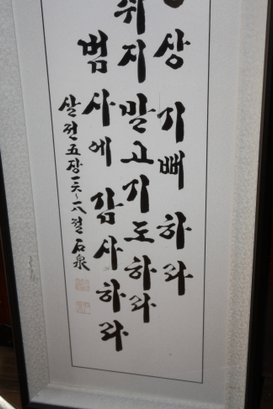 상 기뻐하라
위지 말고 기도하라
범사에 감사하라
살전五장一六~一八절 石泉